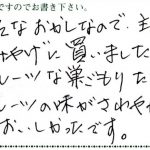 ですのでお書き下さい。
なおかしなので、主
やげに買いました
ーツな巣ごもりた
ルーツの味がされや
おいしかったです。